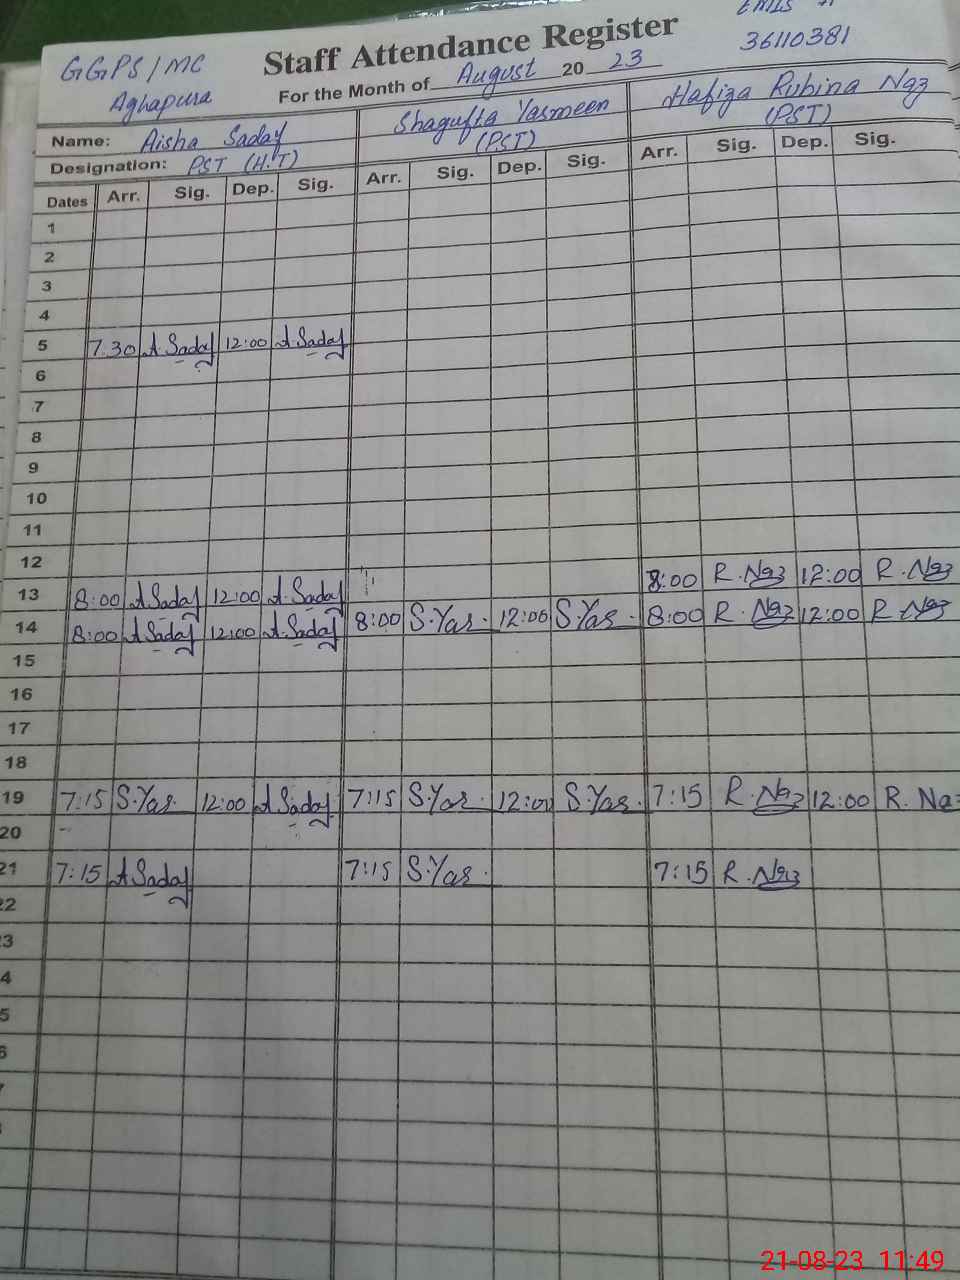 EMIS #
36110381
GGPS/MC
Aghapura
Staff Attendance Register
For the Month of August 2023
Name: Aisha Sadaf Shagufta Yasmeen Hafiza Rubina Naz
Designation: PST (H.T) (PST) (PST)
Dates Arr. Sig. Dep. Sig. Arr. Sig. Dep. Sig. Arr. Sig. Dep. Sig.
1
2
3
4
5 7.30 A.Sadaf 12:00 A.Sadaf
6
7
8
9
10
11
12
13 8:00 A Sadaf 12:00 A.Sadaf 8:00 R.Naz 12:00 R.Naz
14 8:00 A Sadaf 12:00 A.Sadaf 8:00 S.Yas. 12:00 S.Yas. 8:00 R.Naz 12:00 R.Naz
15
16
17
18
19 7:15 S.Yas. 12:00 A Sadaf 7:15 S.Yas. 12:00 S.Yas. 7:15 R.Naz 12:00 R.Naz
20
21 7:15 A Sadaf 7:15 S.Yas. 7:15 R.Naz
22
3
4
5
6
7
21-08-23 11:49